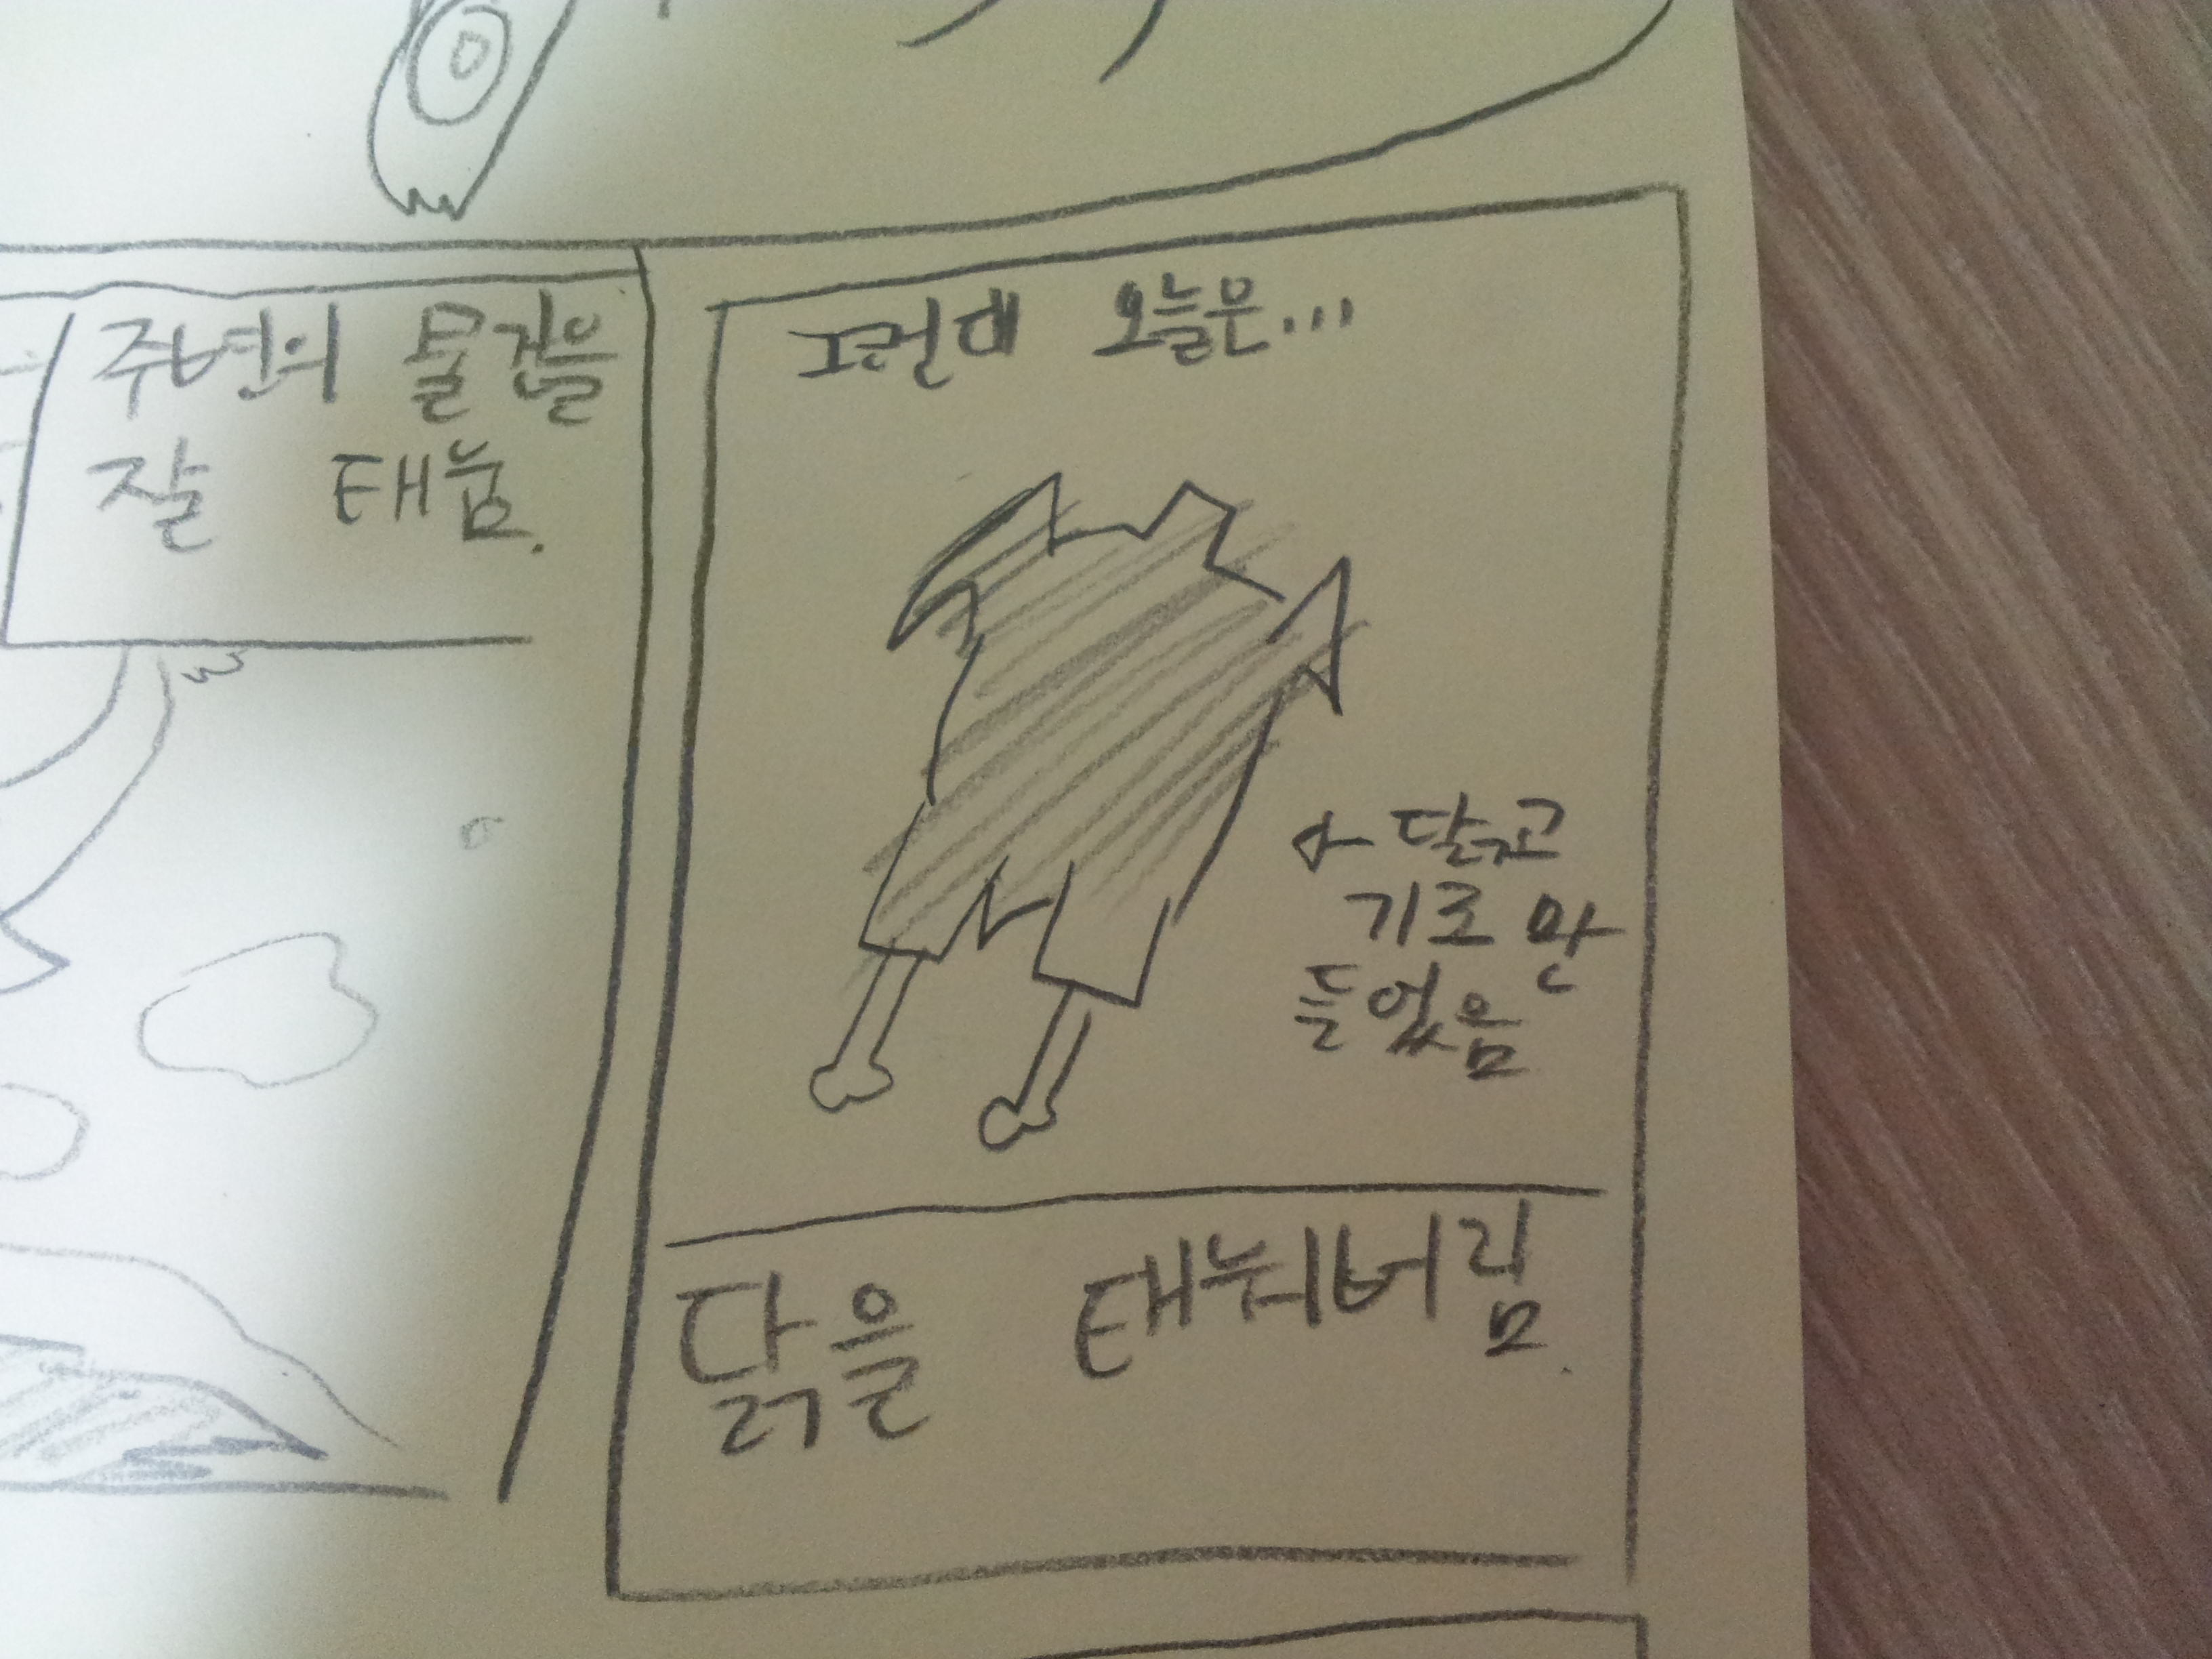 주변의 물건을
잘 태움.
그런대 오늘은...
← 닭고
기로 만
들었음
닭을 태워버림.